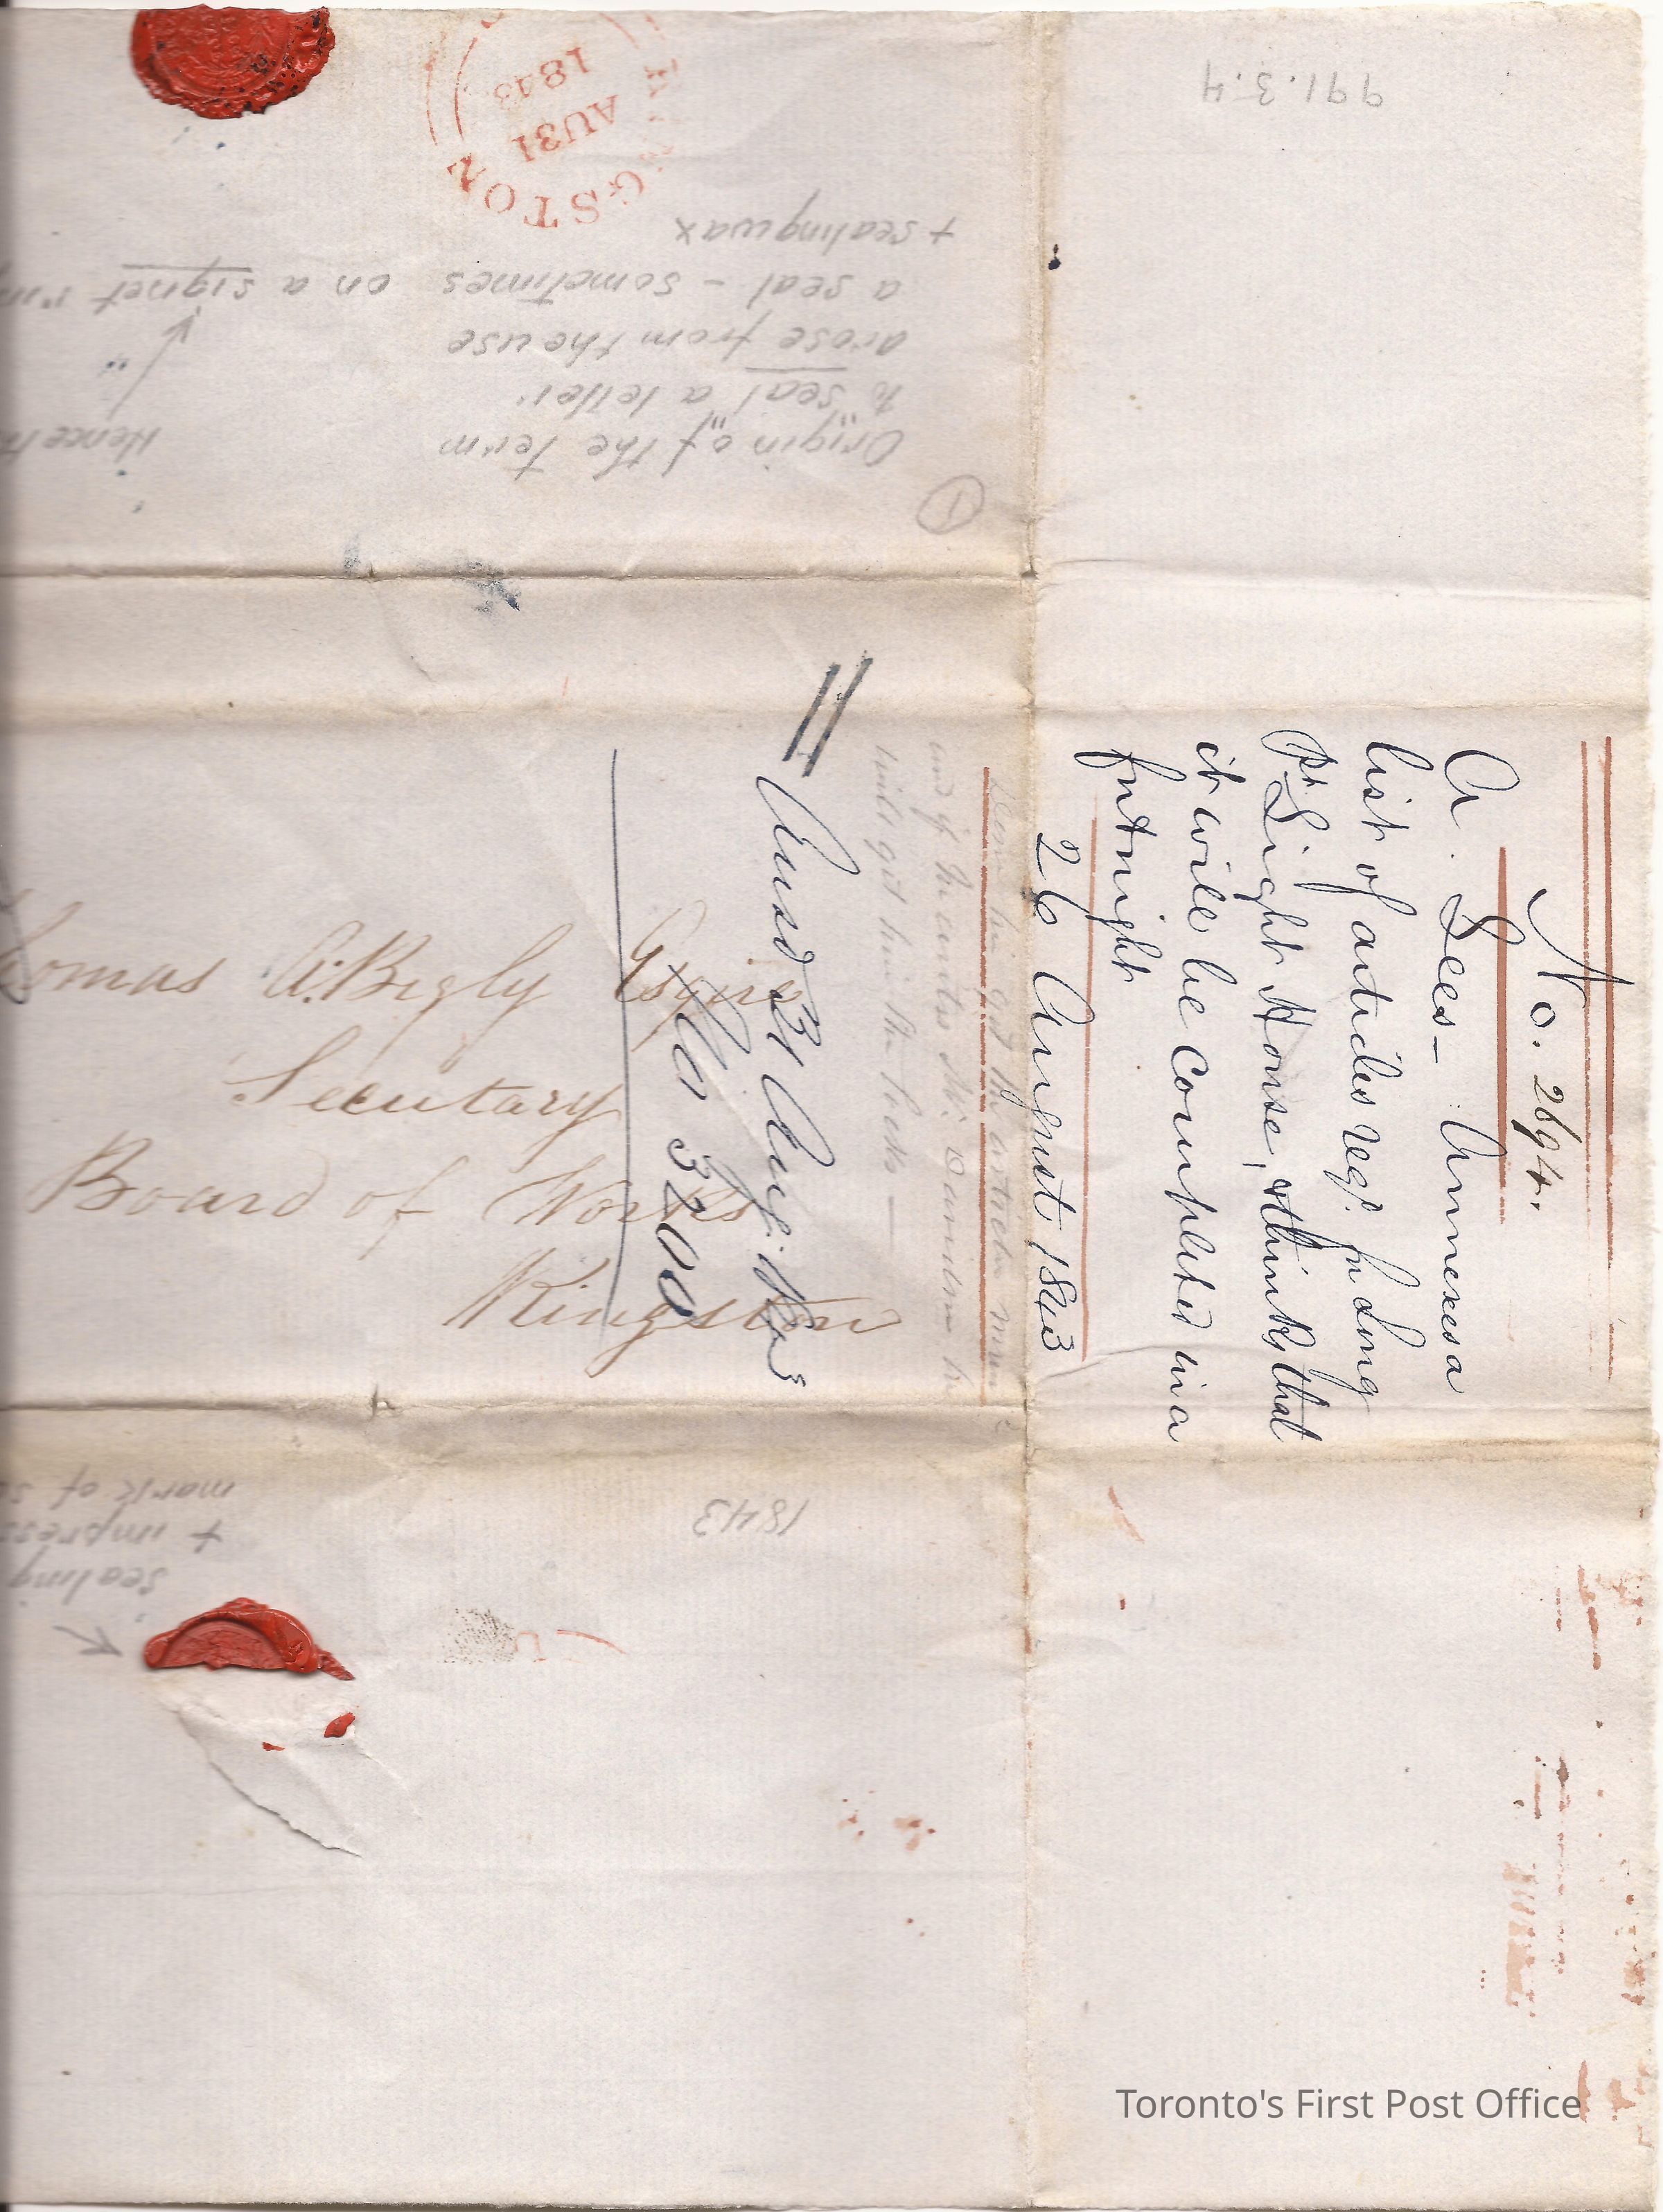 991.3.4
KINGSTON
AU31
1843
①
Origin of the term
"to seal" a letter
arose from the use
a seal - sometimes on a signet
+ sealing wax
Hence
No. 2694.
A. Lees - Annexes a
list of articles reqd. for Long
Pt. Light House, & thinks that
it will be completed in a
fortnight
26 August 1843
and if
will get
Ansd 31 Aug.
No 3200
Thomas A. Begly Esqre
Secretary
Board of Works
Kingston
1843
sealing
+ impress
mark of
Toronto's First Post Office